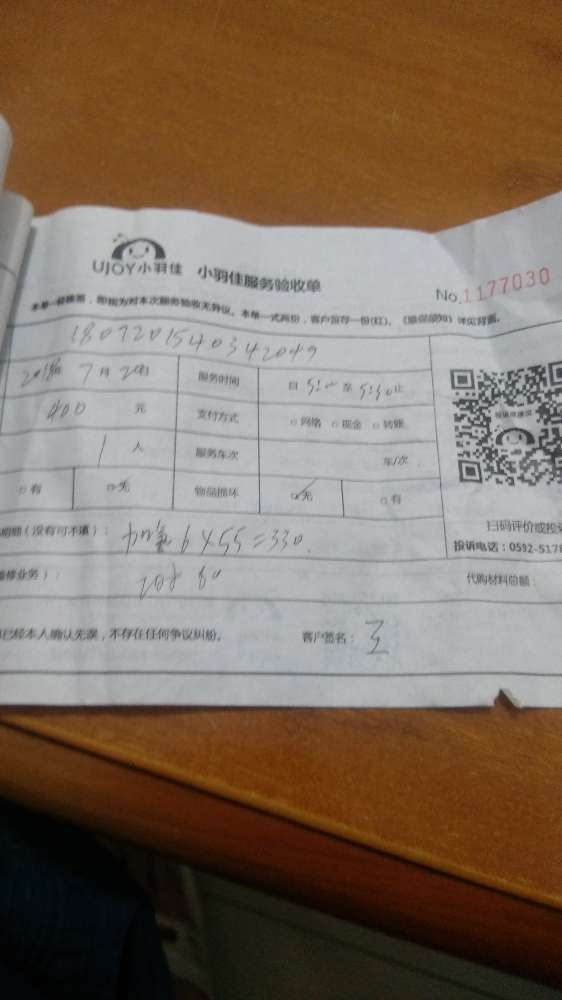 UJOY小羽佳 小羽佳服务验收单
No.1177030
本单一经签署，即视为对本次服务验收无异议。本单一式两份，客户留存一份(红)。《验收须知》详见背面。
1807201540342049
2018年 7月 2 日 服务时间 自 5:10 至 5:30止
400 元 支付方式 □网络 □现金 □转账
1 人 服务车次 车/次
□有 □无 物品损坏 □无 □有
明细（没有可不填）： 加氟 6×55=330.
扫码评价或投
维修业务）：
投诉电话：0592-5178
代购材料总额：
已经本人确认无误，不存在任何争议纠纷。 客户签名： 王